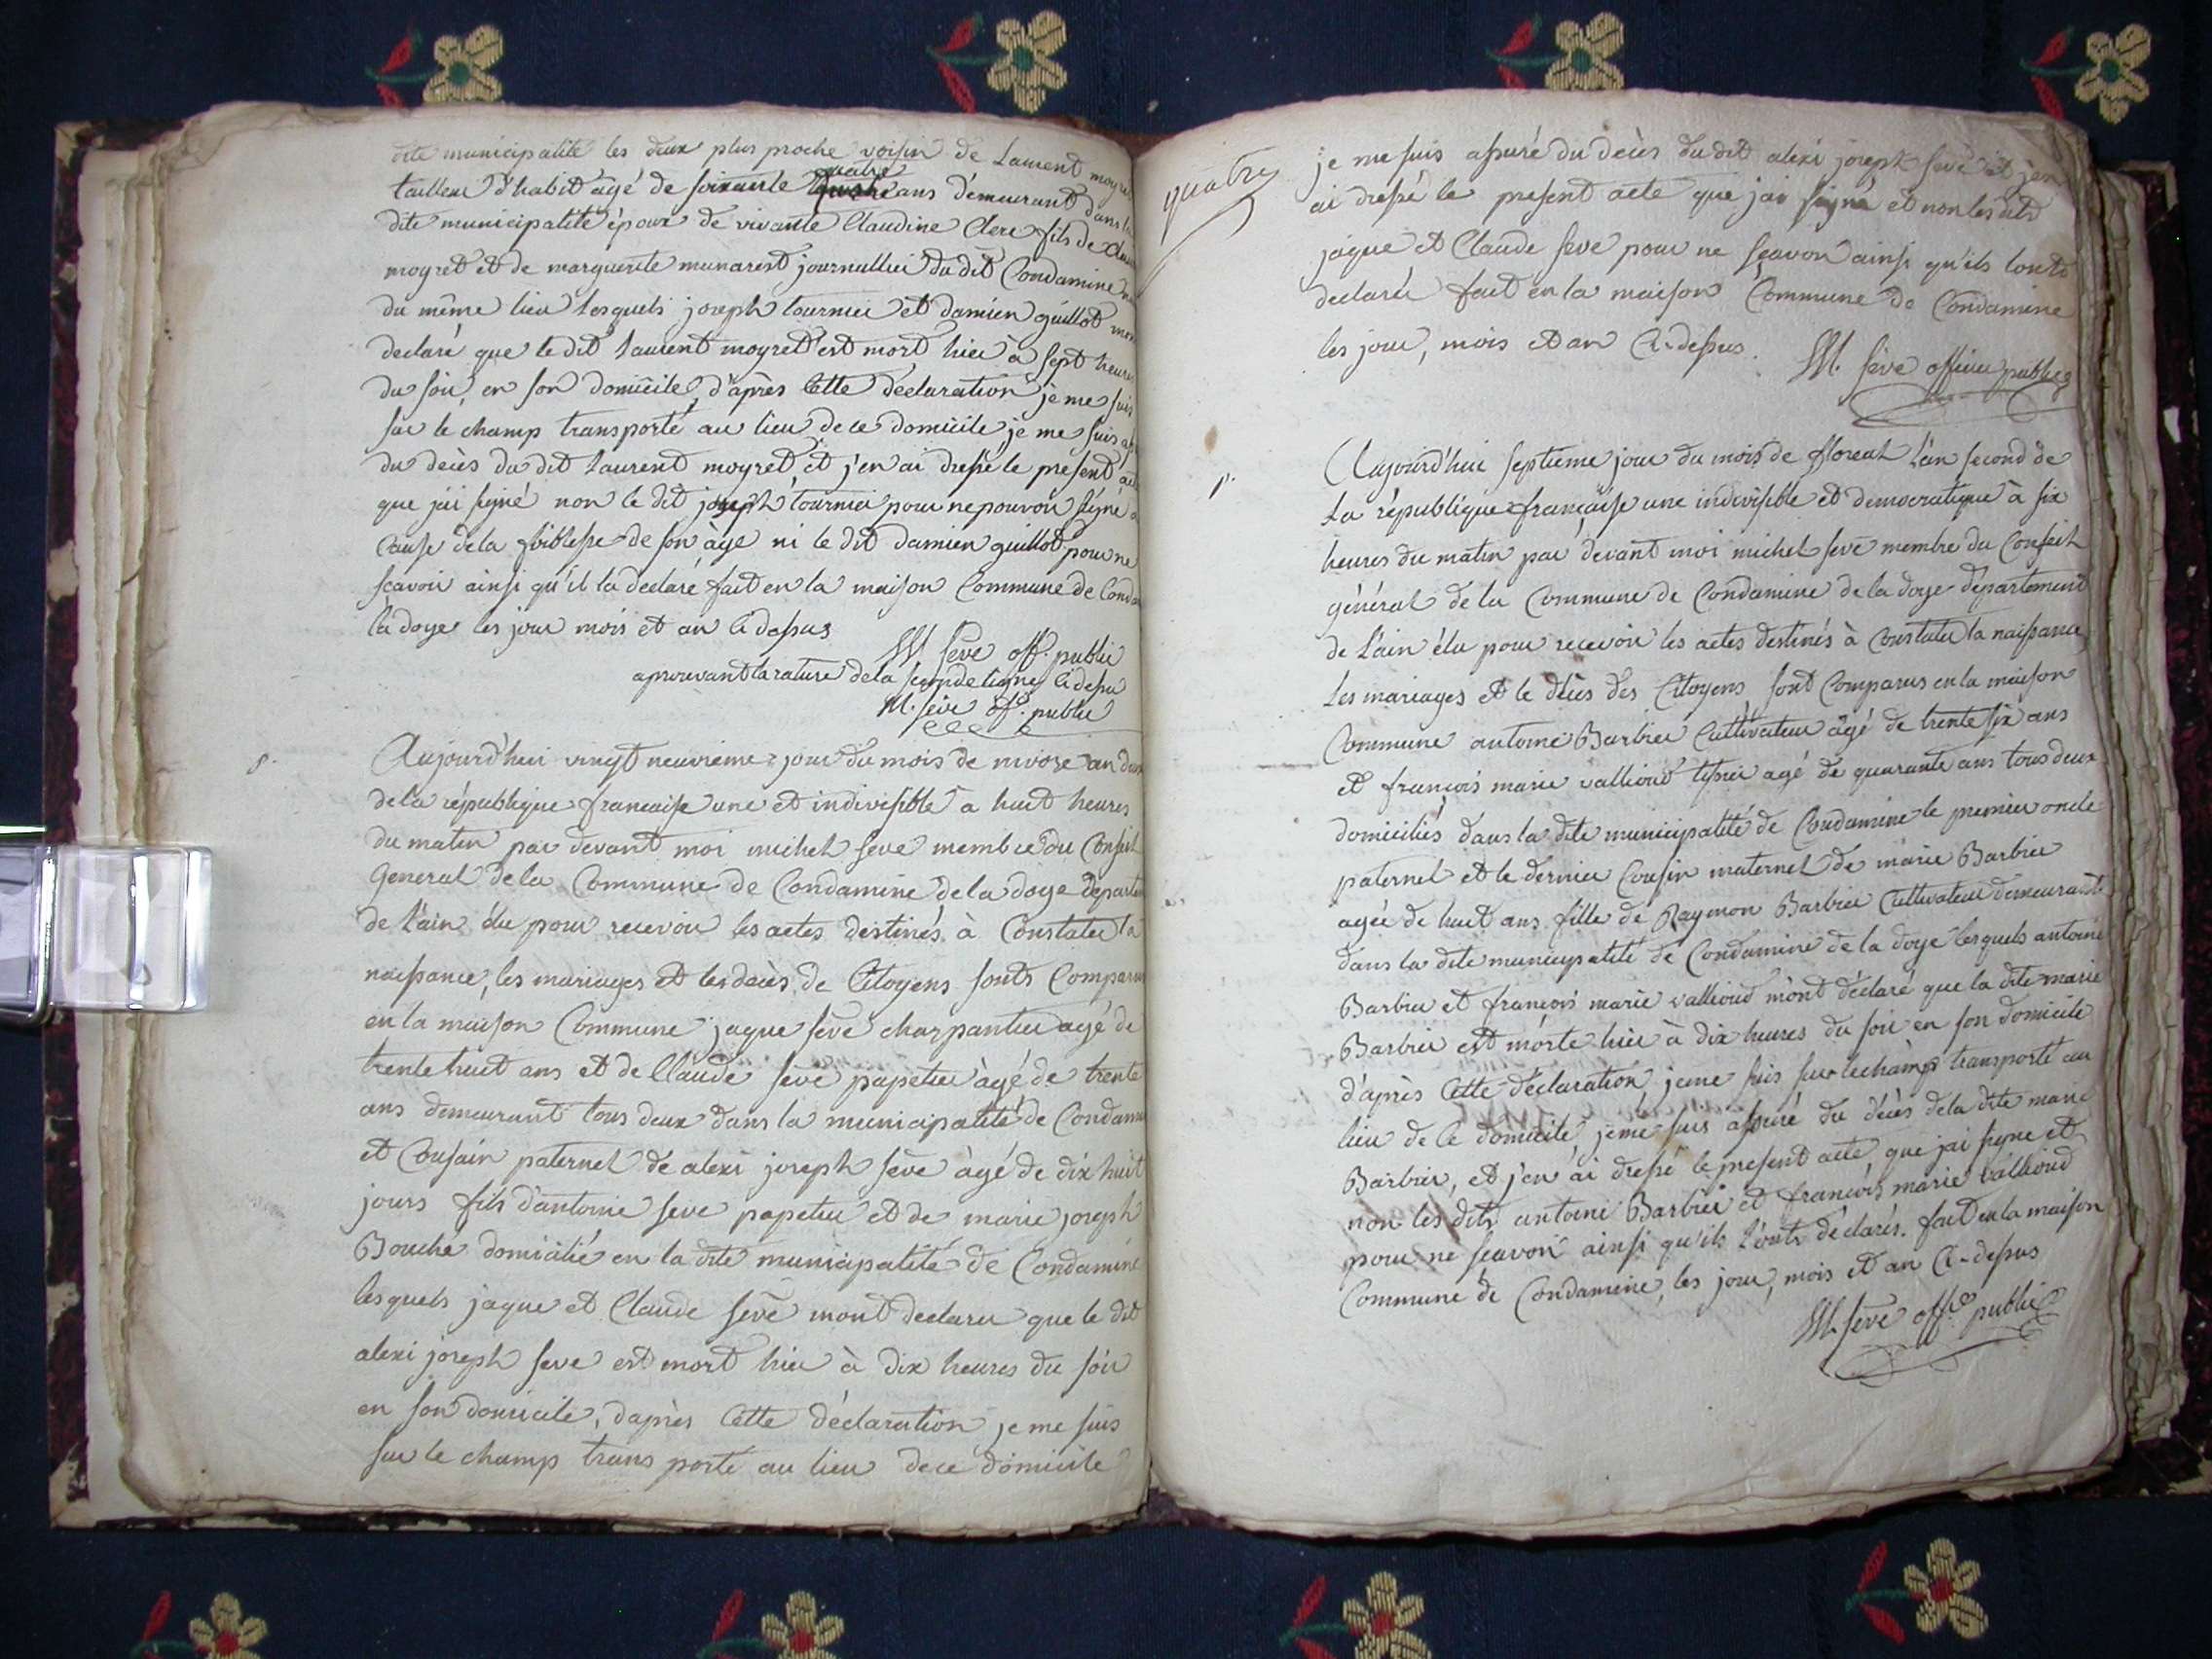 dite municipalité les deux plus proche voisin de Laurent moyret
tailleur d'habit agé de soixante quatre ans demeurant dans la
dite municipalité époux de vivante Claudine Clerc fils de
moyret et de marguerite munarest journallier du dit Condamine
du même lieu lesquels joseph tournier et damien guillot mont
declaré que le dit Laurent moyret est mort hier à sept heures
du soir, en son domicile, d'après Cette déclaration je me suis
sur le champ transporté au lieu de ce domicile je me suis
du decès du dit Laurent moyret et j'en ai dressé le present acte
que j'ai signé non le dit joseph tournier pour ne pouvoir signé a
Cause de la foiblesse de son âge ni le dit damien guillot pour ne
scavoir ainsi qu'il la declaré fait en la maison Commune de
la doye les jour mois et an ci dessus
M seve off. public
aprouvant la rature de la seconde ligne ci desu
M. sève of. public
Aujourd'hui vingt neuvieme jour du mois de nivose an deux
de la république francaise une et indivisible a huit heures
du matin par devant moi michel seve membre du Conseil
General de la Commune de Condamine de la doye
de l'ain élu pour recevoir les actes destinés à Constater la
naissance, les mariages et les decès de Citoyens sonts Comparus
en la maison Commune jaque sève charpantier agé de
trente huit ans et de Claude sève papetier âgé de trente
ans demeurant tous deux dans la municipalité de Condamine
et Cousain paternel de alexi joseph sève âgé de dix huit
jours fils d'antoine seve papetier et de marie joseph
Bouché domicilié en la dite municipalité de Condamine
lesquels jaque et Claude sève mont declarer que le dit
alexi joseph seve est mort hier à dix heures du soir
en son domicile, d'après Cette déclaration je me suis
sur le champ trans porté au lieu de ce domicile
quatre
je me suis assuré du decès du dit alexi joseph seve et j'en
ai dressé le present acte que j'ai signé et non les dits
jaque et Claude seve pour ne scavoir ainsi qu'ils lonts
declarér fait en la maison Commune de Condamine
les jour, mois et an Ci-dessus.
M. sève officier public
Aujourd'hui septieme jour du mois de floreal l'an second de
La république française une indivisible et democratique à six
heures du matin par devant moi michel seve membre du Conseil
général de la Commune de Condamine de la doye departement
de l'ain élu pour recevoir les actes destinés à Constater la naissance
Les mariages et le décès des Citoyens sont Comparus en la maison
Commune antoine Barbier Cultivateur âgé de trente six ans
et françois marie vallioud agé de quarante ans tous deux
domiciliés dans la dite municipalité de Condamine le premier oncle
paternel et le dernier Cousin maternel de marie Barbier
agée de huit ans fille de Raymon Barbier Cultivateur demeurant
dans la dite municipalité de Condamine de la doye lesquels antoine
Barbier et françois marie vallioud m'ont déclaré que la dite marie
Barbier est morte hier à dix heures du soir en son domicile
d'après Cette déclaration je me suis sur le champ transporté au
lieu de ce domicile je me suis assuré du décès de la dite marie
Barbier, et j'en ai dressé le present acte que j'ai signé et
non les dits antoine Barbier et françois marie vallioud
pour ne scavoir ainsi qu'ils l'onts déclarés. fait en la maison
Commune de Condamine, les jour, mois et an Ci-dessus
M. seve off. public